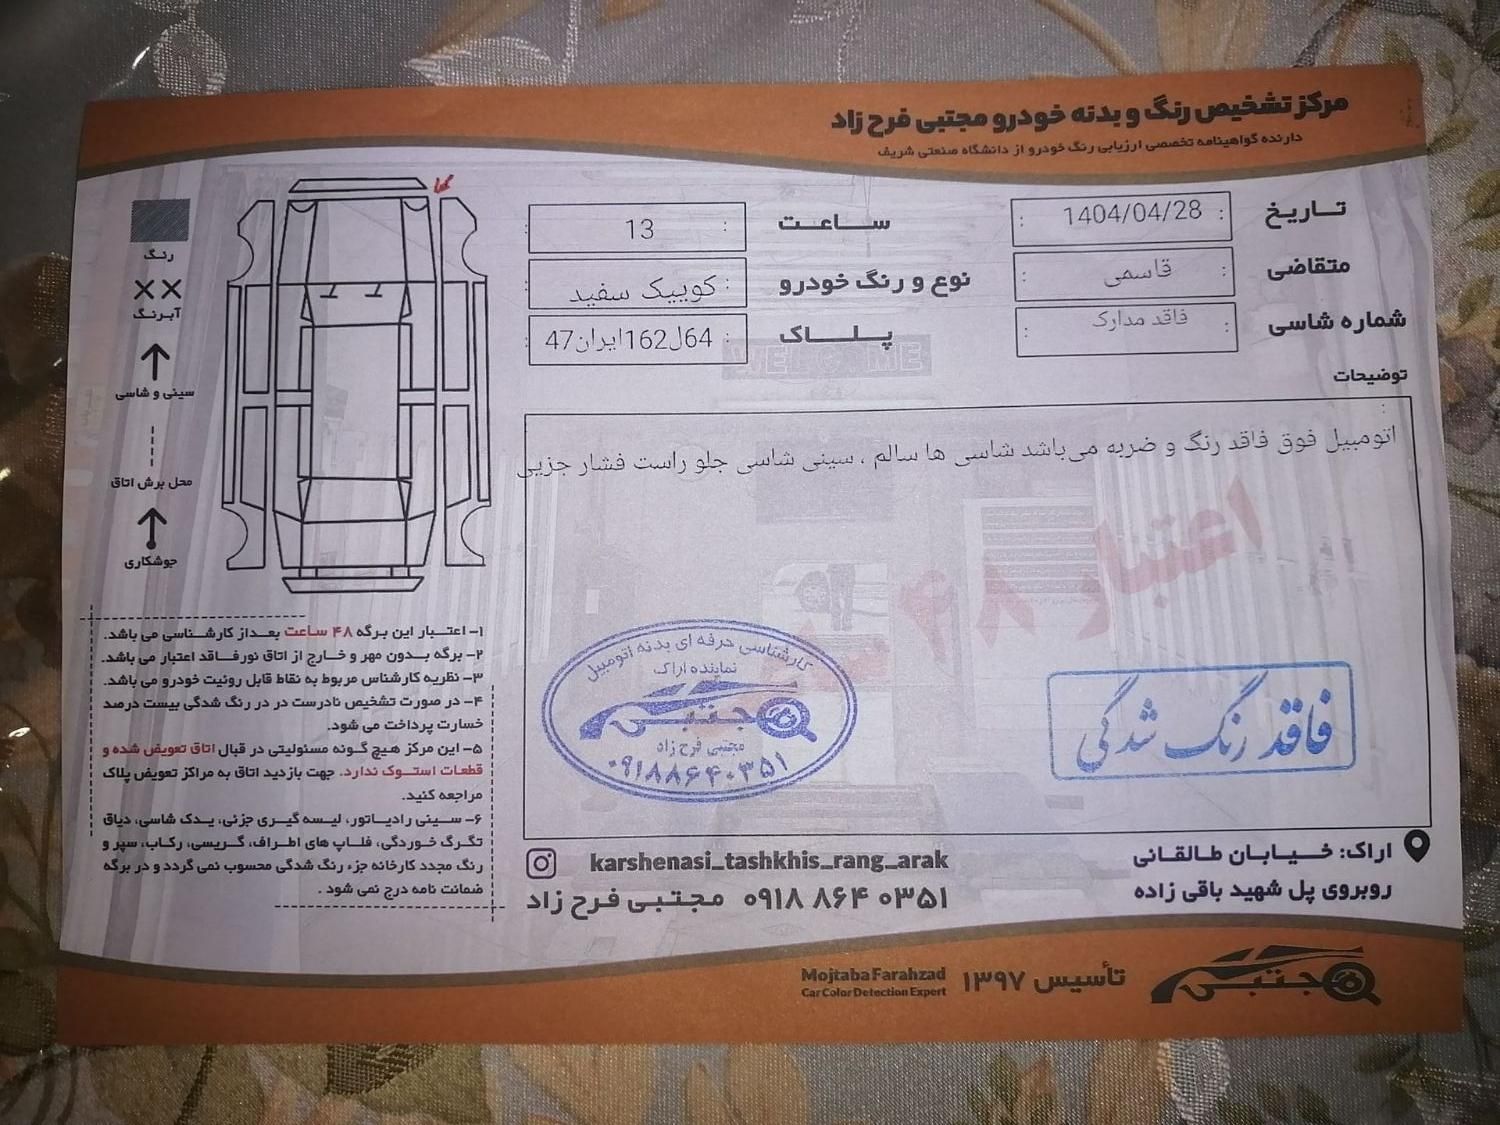 مرکز تشخیص رنگ و بدنه خودرو مجتبی فرح زاد
دارنده گواهینامه تخصصی ارزیابی رنگ خودرو از دانشگاه صنعتی شریف
تاریخ : 1404/04/28 :
ساعت : 13 :
متقاضی : قاسمی :
نوع و رنگ خودرو : کوییک سفید :
شماره شاسی : فاقد مدارک :
پلاک : 64ل162ایران47 :
توضیحات :
اتومبیل فوق فاقد رنگ و ضربه می‌باشد شاسی ها سالم ، سینی شاسی جلو راست فشار جزیی
رنگ
××
آبرنگ
سینی و شاسی
محل برش اتاق
جوشکاری
WELCOME
اعتبار ۴۸
۱- اعتبار این برگه ۴۸ ساعت بعداز کارشناسی می باشد.
۲- برگه بدون مهر و خارج از اتاق نورفاقد اعتبار می باشد.
۳- نظریه کارشناس مربوط به نقاط قابل روئیت خودرو می باشد.
۴- در صورت تشخیص نادرست در در رنگ شدگی بیست درصد
خسارت پرداخت می شود.
۵- این مرکز هیچ گونه مسئولیتی در قبال اتاق تعویض شده و
قطعات استوک ندارد. جهت بازدید اتاق به مراکز تعویض پلاک
مراجعه کنید.
۶- سینی رادیاتور، لیسه گیری جزئی، یدک شاسی، دیاق
تگرگ خوردگی، فلاپ های اطراف، گریسی، رکاب، سپر و
رنگ مجدد کارخانه جزء رنگ شدگی محسوب نمی گردد و در برگه
ضمانت نامه درج نمی شود .
کارشناسی حرفه ای بدنه اتومبیل
نماینده اراک
مجتبی
مجتبی فرح زاد
۰۹۱۸۸۶۴۰۳۵۱
فاقد رنگ شدگی
karshenasi_tashkhis_rang_arak
۰۹۱۸ ۸۶۴ ۰۳۵۱ مجتبی فرح زاد
اراک: خیابان طالقانی
روبروی پل شهید باقی زاده
مجتبی
تأسیس ۱۳۹۷
Mojtaba Farahzad
Car Color Detection Expert